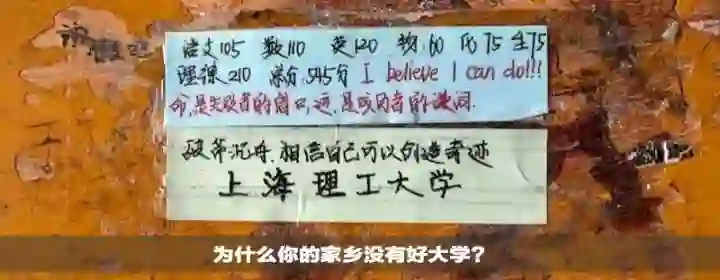 语文105 数110 英120 物60 化75 生75
理综210 总分545分 I believe I can do!!!
命,是失败者的借口,运,是成功者的谦词.
破斧沉舟.相信自己可以创造奇迹
上海理工大学
为什么你的家乡没有好大学?